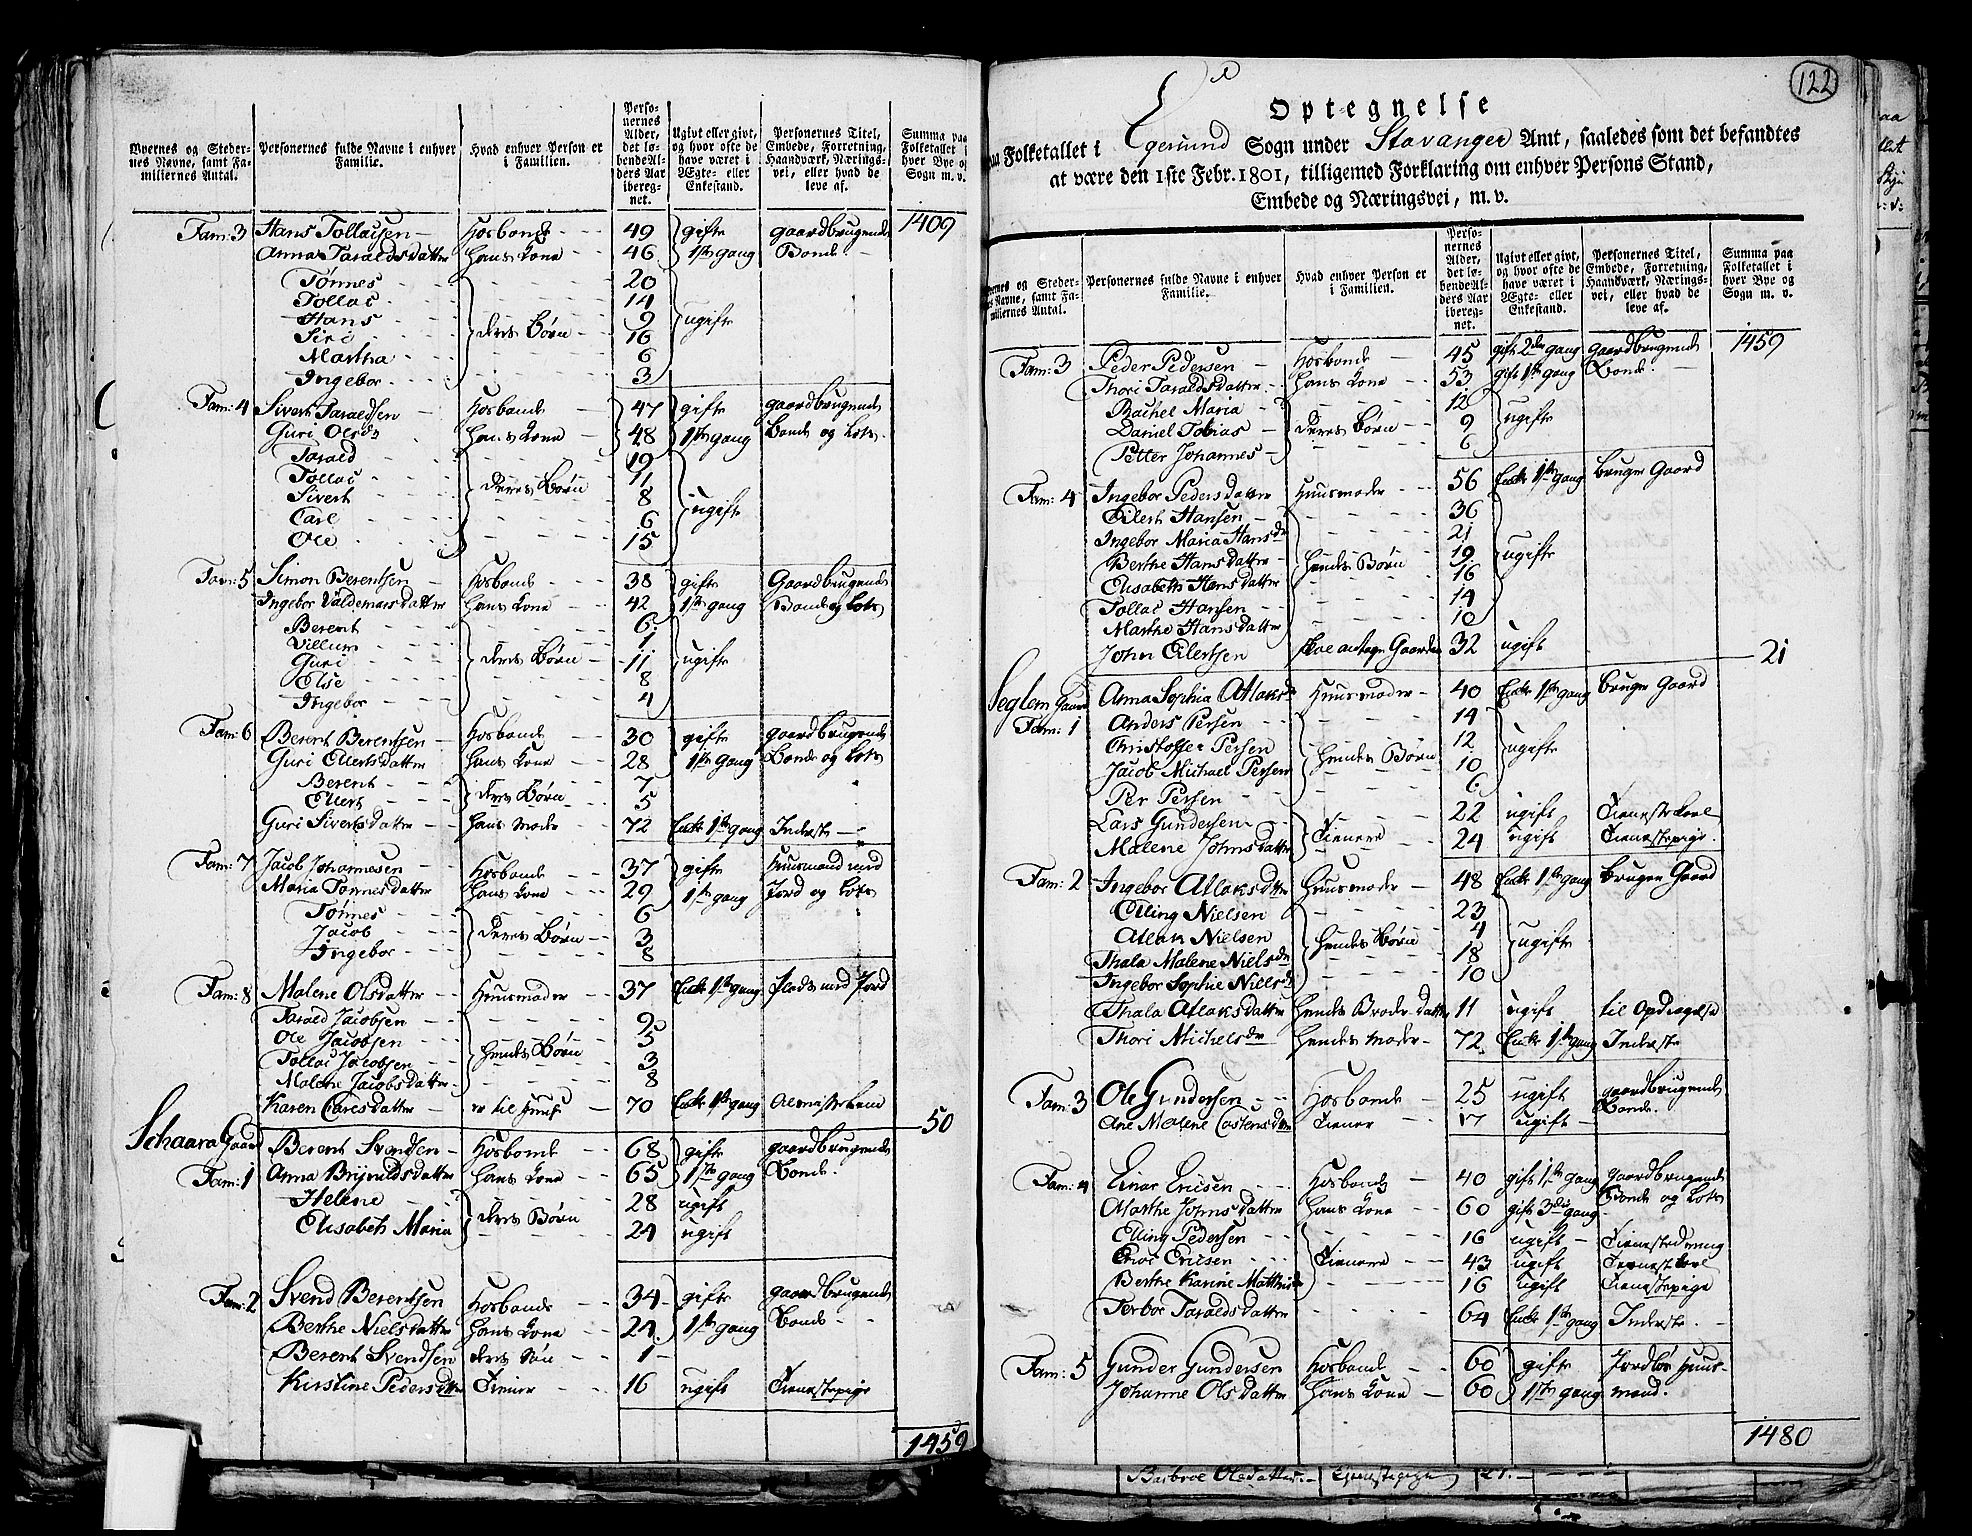 Byernes og Steder-
nes Navne, samt Fa-
miliernes Antal.
Personernes fulde Navne i enhver
Familie.
Hvad enhver Person er
i Familien.
Perso-
nernes
Alder,
det lø-
bende Al-
ders Aar
ibereg-
net.
Ugivt eller givt,
og hvor ofte de
have været i
Ægte- eller
Enkestand.
Personernes Titel,
Embede, Forretning,
Haandværk, Nærings-
vei, eller hvad de
leve af.
Summa paa
Folketallet i
hver Bye og
Sogn m. v.
1409
Fam: 3 Hans Tollacsen Hosbonde 49 gifte gaardbrugende
Anna Taraldsdatter Hans Kone 46 1ste gang Bonde
Tønnes 20
Tollac 14
Hans 9
Siri deres Børn 16 ugifte
Martha 6
Ingebor 3
Fam: 4 Sivert Taraldsen Hosbonde 47 gifte gaardbrugende
Guri Olsdr Hans Kone 48 1ste gang Bonde og Lots
Tarald 19
Tollac 11
Sivert deres Børn 8 ugifte
Carl 6
Ole 15
Fam: 5 Simon Berentsen Hosbonde 38 gifte Gaardbrugende
Ingebor Valdemarsdatter Hans Kone 42 1ste gang Bonde og Lots
Berent 6
Villum 1
Guri deres Børn 11 ugifte
Else 8
Ingebor 4
Fam: 6 Berent Berentsen Hosbonde 30 gifte gaardbrugende
Guri Eilertsdatter Hans Kone 28 1ste gang Bonde og Lots
Berent 7
Eilert deres Børn 5
Guri Sivertsdatter Hans Moder 72 Enke 1ste gang Inderste
Fam: 7 Jacob Johannesen Hosbonde 37 gifte Huusmand med
Maria Tønnesdatter Hans Kone 29 1ste gang Jord og Lots
Tønnes 6
Jacob deres Børn 3
Ingebor 8
Fam: 8 Malene Olsdatter Huusmoder 37 Enke 1ste gang Plads med Jord
Tarald Jacobsen 9
Ole Jacobsen 5
Tollac Jacobsen Hendes Børn 3
Malene Jacobsdatter 8
Karen Carlsdatter er til Huus 70 Enke 1ste gang Almisselem
50
Schaara Gaard Berent Svendsen Hosbonde 68 gifte gaardbrugende
Fam: 1 Anna Brynildsdatter Hans Kone 65 1ste gang Bonde
Helene 28 ugift
Elisabeth Maria deres Børn 24 ugift
Fam: 2 Svend Berentsen Hosbonde 34 gifte gaardbrugende
Berthe Nielsdatter Hans Kone 24 1ste gang Bonde
Berent Svendsen deres Søn 1
Kirstine Pedersdatter Tiener 16 ugift Tienestepige
1459
122
Optegnelse
paa Folketallet i Egersund Sogn under Stavanger Amt, saaledes som det befandtes
at være den 1ste Febr. 1801, tilligemed Forklaring om enhver Persons Stand,
Embede og Næringsvei, m. v.
Byernes og Steder-
nes Navne, samt Fa-
miliernes Antal.
Personernes fulde Navne i enhver
Familie.
Hvad enhver Person er
i Familien.
Perso-
nernes
Alder,
det lø-
bende Al-
ders Aar
ibereg-
net.
Ugivt eller givt,
og hvor ofte de
have været i
Ægte- eller
Enkestand.
Personernes Titel,
Embede, Forretning,
Haandværk, Nærings-
vei, eller hvad de
leve af.
Summa paa
Folketallet i
hver Bye og
Sogn m. v.
1459
Fam: 3 Peder Pedersen Hosbonde 45 gift 2den gang gaardbrugende
Thori Taraldsdatter Hans Kone 53 gift 1ste gang Bonde
Rachel Maria 12
Daniel Tobias deres Børn 9 ugifte
Petter Johannes 6
Fam: 4 Ingebor Pedersdatter Huusmoder 56 Enke 1ste gang bruger Gaard
Eilert Hansen 36
Ingebor Maria Hansdr 21
Berthe Hansdatter 19 ugifte
Elisabeth Hansdatter Hendes Børn 16
Tollac Hansen 14
Marthe Hansdatter 10
John Eilertsen skal antage Gaarden 32 ugift
21
Seglem Gaard Anna Sophia Atlaksdr Huusmoder 40 Enke 1ste gang bruger Gaard
Fam: 1 Anders Persen 14
Christoffer Persen 12 ugifte
Jacob Michael Persen Hendes Børn 10
Per Persen 6
Lars Gundersen 22 ugift Tienestekarl
Malene Johnsdatter Tienere 24 ugift Tienestepige
Fam: 2 Ingebor Atlaksdtter Huusmoder 48 Enke 1ste gang bruger Gaard
Elling Nielsen 23
Atlak Nielsen 4
Thala Malene Nielsdr Hendes Børn 18 ugifte
Ingebor Sophie Nielsdr 10
Thala Atlaksdatter Hendes Broderdatter 11 ugift til Opdragelse
Thori Michelsdr Hendes Moder 72 Enke 1ste gang Inderste
Fam: 3 Ole Gundersen Hosbonde 25 ugift gaardbrugende
Bonde.
Ane Malene Tiener 17 ugift
Fam: 4 Einar Ericsen Hosbonde 40 gift 1ste gang Gaardbrugende
Marthe Johnsdatter Hans Kone 60 gift 3die gang Bonde og Lots
Elling Pedersen 16 ugift Tienestedreng
Eric Ericsen Tienere 43 ugift Tienestekarl
Berthe Karine 16 ugift Tienestepige
Terbor Taraldsdatter 64 Enke 1ste gang Inderste
Fam: 5 Gunder Gundersen Hosbonde 60 gifte Jordløs Huus-
Johanne Olsdatter Hans Kone 60 1ste gang mand.
1480
Olsdatter Tienestepige 21